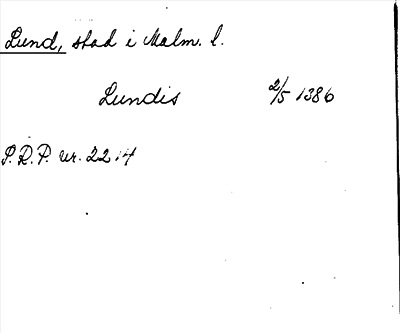 Lund, stad i Malm. l.
Lundis 2/5 1386
S.R.P. nr. 2214